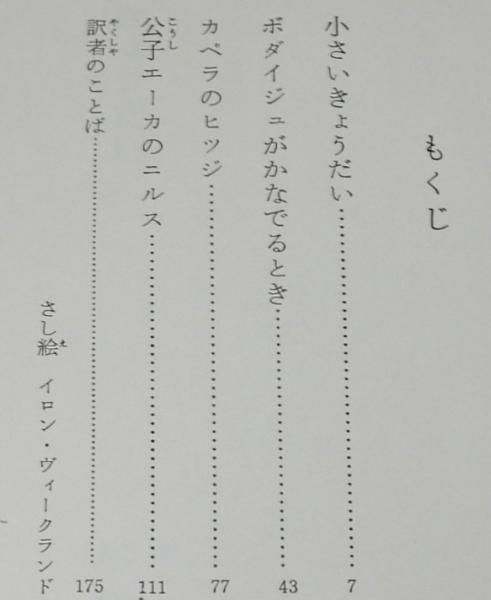 もくじ
小さいきょうだい……………………7
ボダイジュがかなでるとき……………………43
カペラのヒツジ……………………77
公子エーカのニルス……………………111
訳者のことば……………………175
さし絵 イロン・ヴィークランド